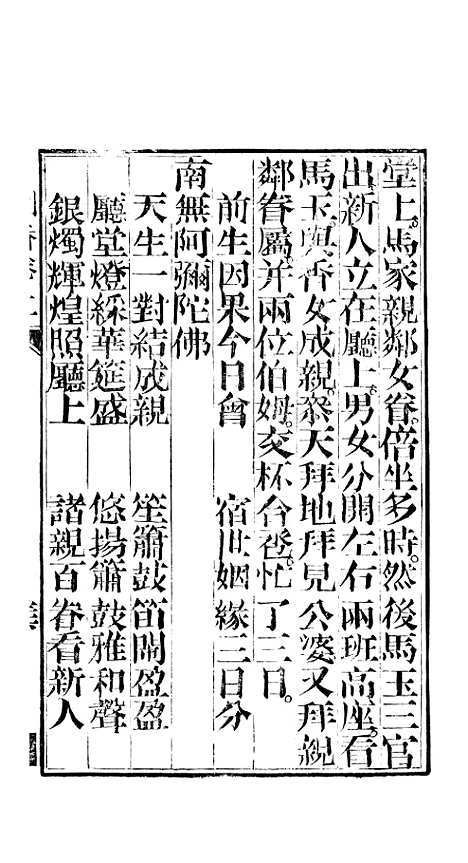 堂上。馬家親鄰女眷。倍坐多時。然後馬玉三官
出。新人立在廳上。男女分開左右兩班高座。看
馬玉與香女成親。叅天拜地拜見公婆又拜親
鄰眷屬并兩位伯姆。交杯合卺。忙了三日。
前生因果今日會 宿世姻緣三日分
南無阿彌陀佛
天生一對結成親 笙簫鼓笛鬧盈盈
廳堂燈綵華筵盛 悠揚簫鼓雅和聲
銀燭輝煌照廳上 諸親百眷看新人